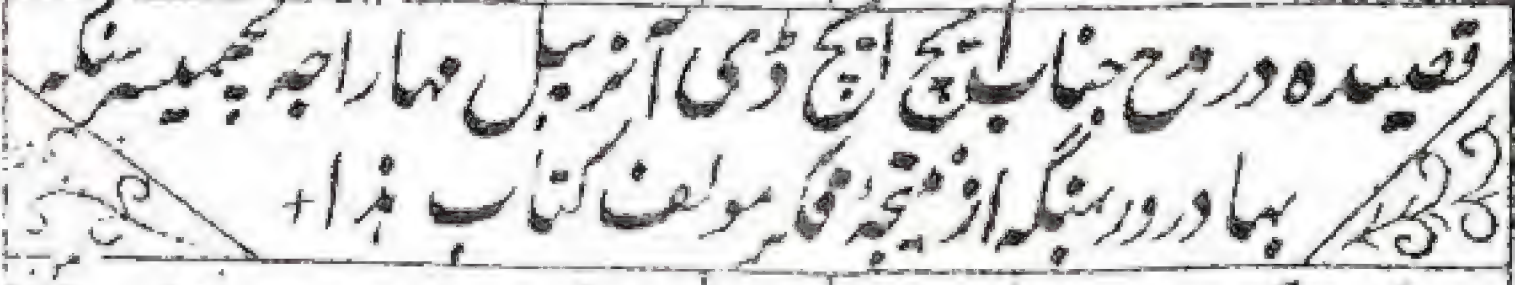 قصیدہ در مدح جناب ایچ ایچ ڈی آنریبل مہاراجہ لچھمیسر سنگہ
بہادر دربنگہ از نتیجۂ فکر مولف کتاب ہذا +